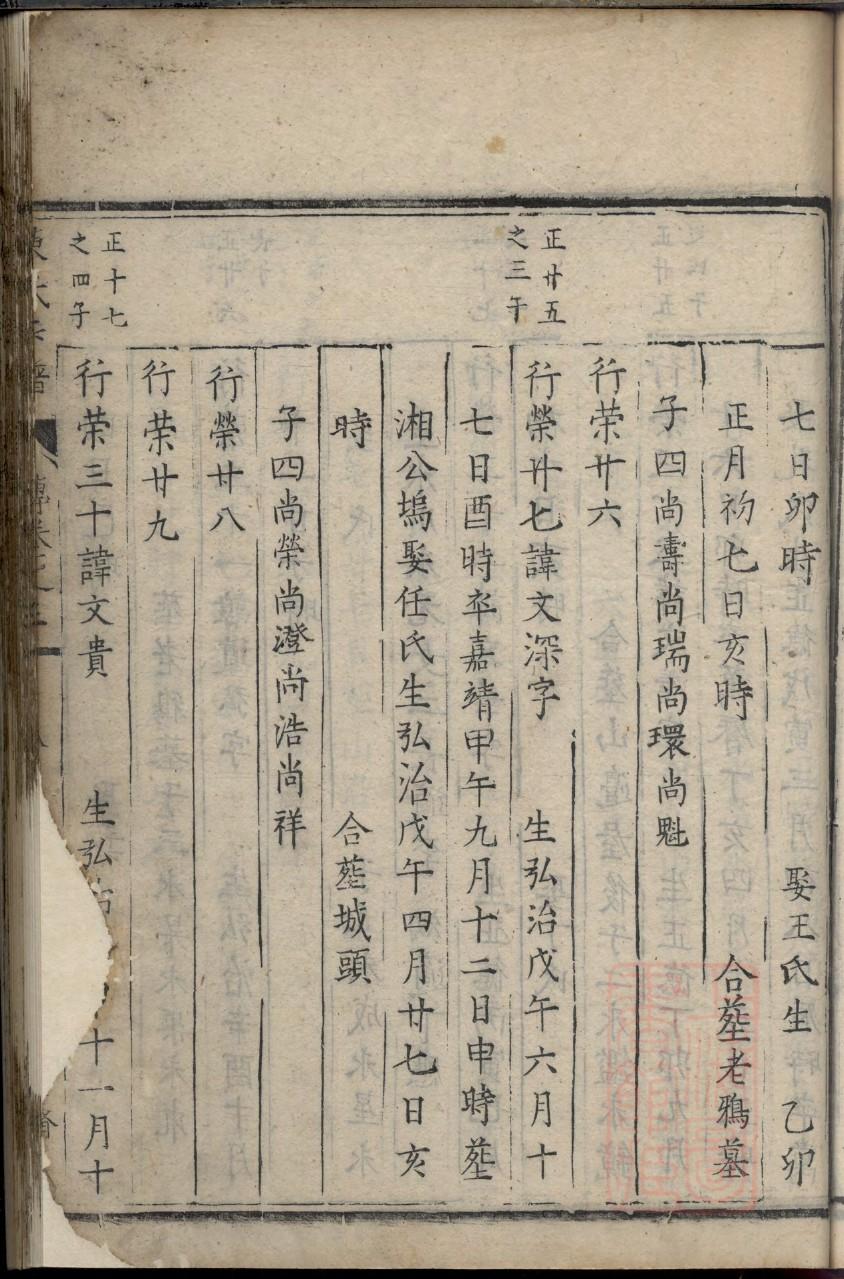 七日卯時 娶王氏生 乙卯
正月初七日亥時 合塟老鴉墓
子四尚壽尚瑞尚環尚魁
行荣廿六
正廿五
之三子
行榮廿七諱文深字 生弘治戊午六月十
七日酉時卒嘉靖甲午九月十二日申時塟
湘公塢娶任氏生弘治戊午四月廿七日亥
時 合塟城頭
子四尚榮尚澄尚浩尚祥
行榮廿八
行荣廿九
正十七
之四子
行荣三十諱文貴 生弘 十一月十